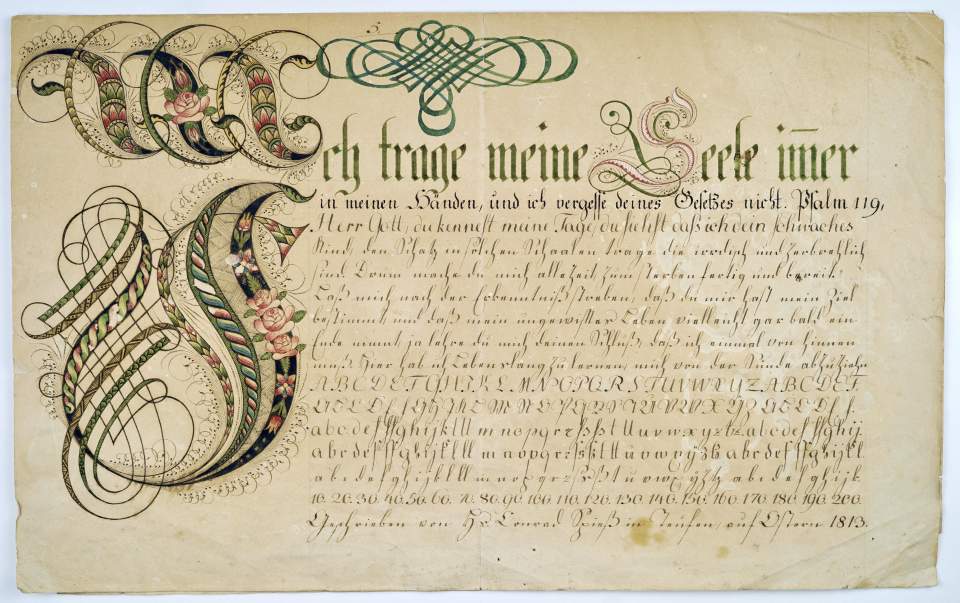 5.
Ich trage meine Seele im̅er
in meinen Händen, und ich vergesse deines Gesetzes nicht. Psalm 119,
Herr Gott, du kennest meine Tage, du siehst daß ich dein schwaches
Kind, den Schatz in solchen Schaalen trage die irrdisch und zerbrechlich
sind. Drum mache du mich allezeit zum sterben fertig und bereit.
Laß mich nach der Erkenntniß streben, daß du mir hast mein Ziel
bestimmt, und daß mein ungewisser Leben vielleicht gar bald ein
Ende nimt, ja lehre du mich deinen Schluß, daß ich einmal von hinnen
muß. Hier hab ich Lebenslang zu lernen, mich von der Sünde abzuziehn
A B C D E F G H I K L M N O P Q R S T U V W X Y Z A B C D E F
A B C D E F G H I K M N O P Q R S T U V W X Y Z A B C D E F.
a b c d e f ff g h i j k l ll m n o p q r z s ß st t u v w x y z tz a b c d e f ff g h ij
a b c d e f ff g h i j k l ll m n o p q r z s ß st tt u v w x y z a b c d e f ff g h i j k l
a b c d e f g h i j k l ll m n o p q r z s ß st t u v w x y z tz a b c d e f g h i j k
10. 20. 30. 40. 50. 60. 70. 80. 90. 100. 110. 120. 130. 140. 150. 160. 170. 180. 190. 200.
Geschrieben von Hs Conrad Spieß in Teufen, auf Ostern 1813.